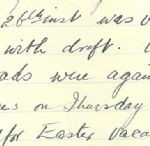 26th inst was
with drift.
ads were again
on Thursday
for Easter vaca